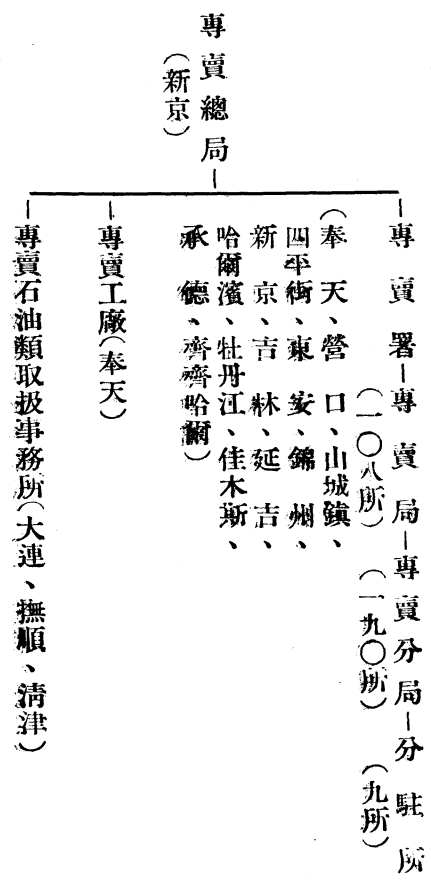 專賣總局
（新京）
專賣署－專賣局－專賣分局－分駐所
（一〇八所）
（一九〇所）
（九所）
（奉天、營口、山城鎭、
四平街、東安、錦州、
新京、吉林、延吉、
哈爾濱、牡丹江、佳木斯、
承德、齊齊哈爾）
專賣工廠（奉天）
專賣石油類取扱事務所（大連、撫順、淸津）